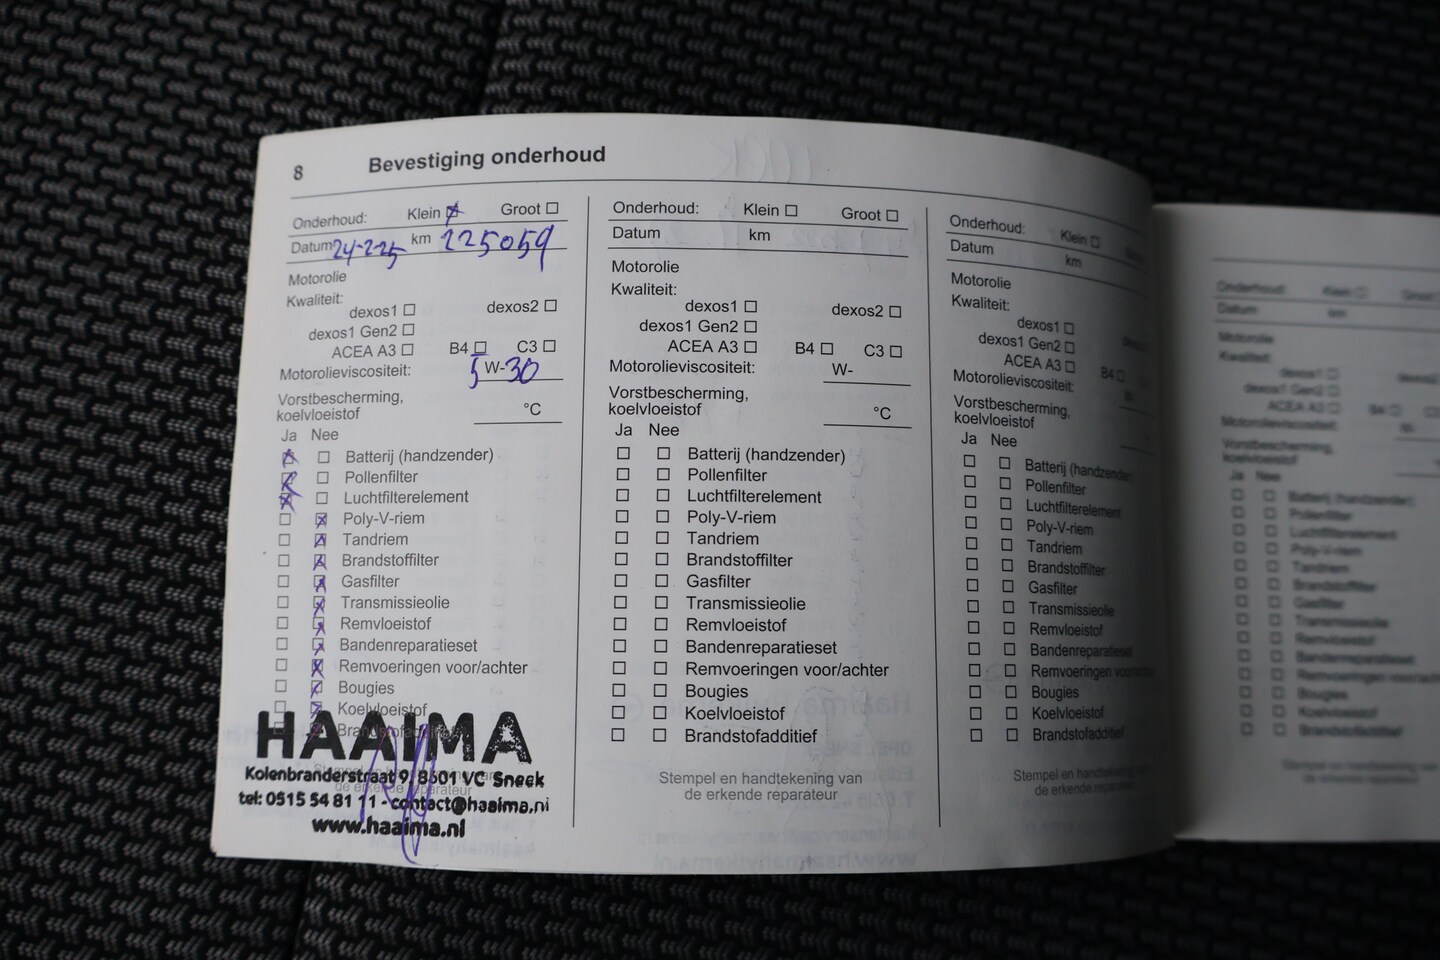 8 Bevestiging onderhoud
Onderhoud: Klein Groot
Datum 24-2-25 km 225059
Motorolie
Kwaliteit:
dexos1 dexos2
dexos1 Gen2
ACEA A3 B4 C3
Motorolieviscositeit: 5 W-30
Vorstbescherming,
koelvloeistof °C
Ja Nee
Batterij (handzender)
Pollenfilter
Luchtfilterelement
Poly-V-riem
Tandriem
Brandstoffilter
Gasfilter
Transmissieolie
Remvloeistof
Bandenreparatieset
Remvoeringen voor/achter
Bougies
Koelvloeistof
Brandstofadditief
HAAIMA
Stempel en handtekening van
de erkende reparateur
Kolenbranderstraat 9, 8601 VC Sneek
tel: 0515 54 81 11 - contact@haaima.nl
www.haaima.nl
Onderhoud: Klein Groot
Datum km
Motorolie
Kwaliteit:
dexos1 dexos2
dexos1 Gen2
ACEA A3 B4 C3
Motorolieviscositeit: W-
Vorstbescherming,
koelvloeistof °C
Ja Nee
Batterij (handzender)
Pollenfilter
Luchtfilterelement
Poly-V-riem
Tandriem
Brandstoffilter
Gasfilter
Transmissieolie
Remvloeistof
Bandenreparatieset
Remvoeringen voor/achter
Bougies
Koelvloeistof
Brandstofadditief
Stempel en handtekening van
de erkende reparateur
Onderhoud: Klein
Datum km
Motorolie
Kwaliteit:
dexos1
dexos1 Gen2
ACEA A3 B4
Motorolieviscositeit:
Vorstbescherming,
koelvloeistof
Ja Nee
Batterij (handzender)
Pollenfilter
Luchtfilterelement
Poly-V-riem
Tandriem
Brandstoffilter
Gasfilter
Transmissieolie
Remvloeistof
Bandenreparatieset
Remvoeringen
Bougies
Koelvloeistof
Brandstofadditief
Stempel en handtekening
de erkende reparateur
Onderhoud: Klein
Datum km
Motorolie
Kwaliteit:
dexos1
dexos1 Gen2
ACEA A3
Motorolieviscositeit:
Vorstbescherming,
koelvloeistof
Ja Nee
Batterij (handzender)
Pollenfilter
Luchtfilterelement
Poly-V-riem
Tandriem
Brandstoffilter
Gasfilter
Transmissieolie
Remvloeistof
Bandenreparatieset
Bougies
Koelvloeistof
Brandstofadditief